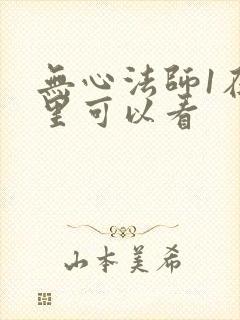 無心法師1在
里可以看
山本美希